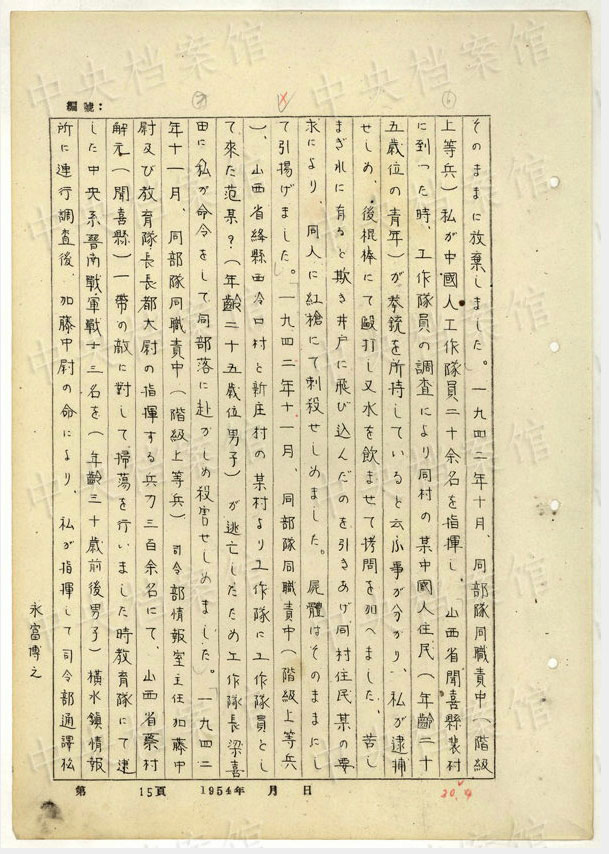 編號：
そのままに放棄しました。一九四二年十月、同部隊同職責中（階級
上等兵）私が中國人工作隊員二十余名を指揮し、山西省聞喜縣裴村
に到った時、工作隊員の調査により同村の某中國人住民（年齡二十
五歳位の青年）が拳銃を所持していると云ふ事が分かり、私が逮捕
せしめ、後棍棒にて毆打し又水を飲ませて拷問を加へました、苦し
まぎれに有ると欺き井戸に飛び込んだのを引きあげ同村住民某の要
求により、同人に紅槍にて刺殺せしめました。屍體はそのままにし
て引揚げました。一九四二年十一月、同部隊同職責中（階級上等兵
）、山西省絳縣西冷口村と新庄村の某村より工作隊に工作隊員とし
て來た范某？（年齡二十五歳位男子）が逃亡したため工作隊長梁喜
田に私が命令をして同部落に赴かしめ殺害せしめました。一九四二
年十一月、同部隊同職責中（階級上等兵）司令部情報室主任加藤中
尉及び教育隊長長都大尉の指揮する兵力三百余名にて、山西省薬村
解元（聞喜縣）一帶の敵に對して掃蕩を行いました時教育隊にて逮
した中央系晉南戰軍戰士三名を（年齡三十歳前後男子）橫水鎮情報
所に連行調査後、加藤中尉の命により、私が指揮して司令部通譯
永富博之
第 15頁 1954年 月 日
20.4
中央档案馆